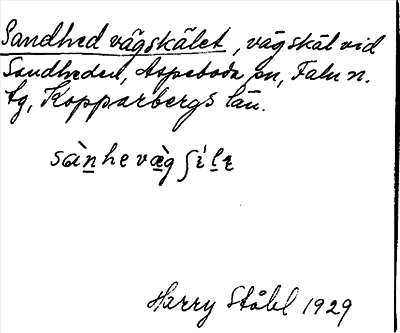 Sandhed vägskälet, vägskäl vid
Sandheden, Aspeboda sn, Falu n.
tg, Kopparbergs län.
sàn̲he væ̲̀g ʃɛ́l̲ɛ
Harry Ståhl 1929